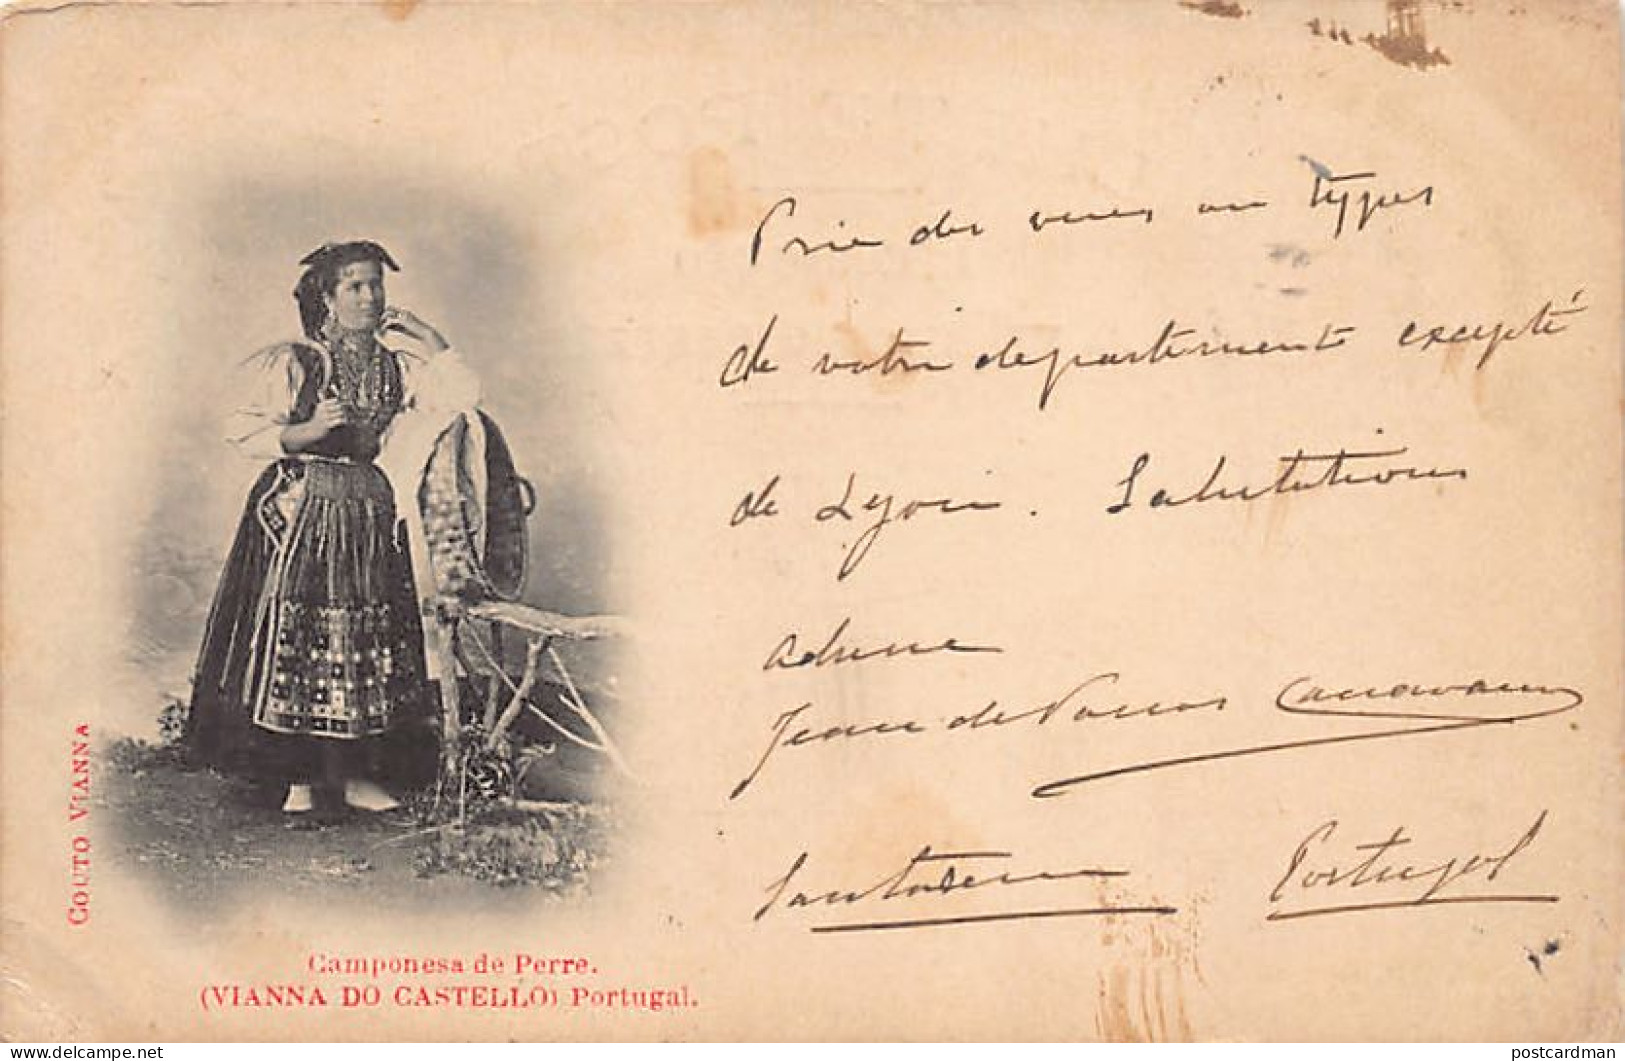 Prie des vues ou types
de votre departement excepté
de Lyon. Salutations
adresse
Jean de Passos Canavarro
Santarem Portugal
COUTO VIANNA
Camponesa de Perre.
(VIANNA DO CASTELLO) Portugal.
www.delcampe.net
postcardman